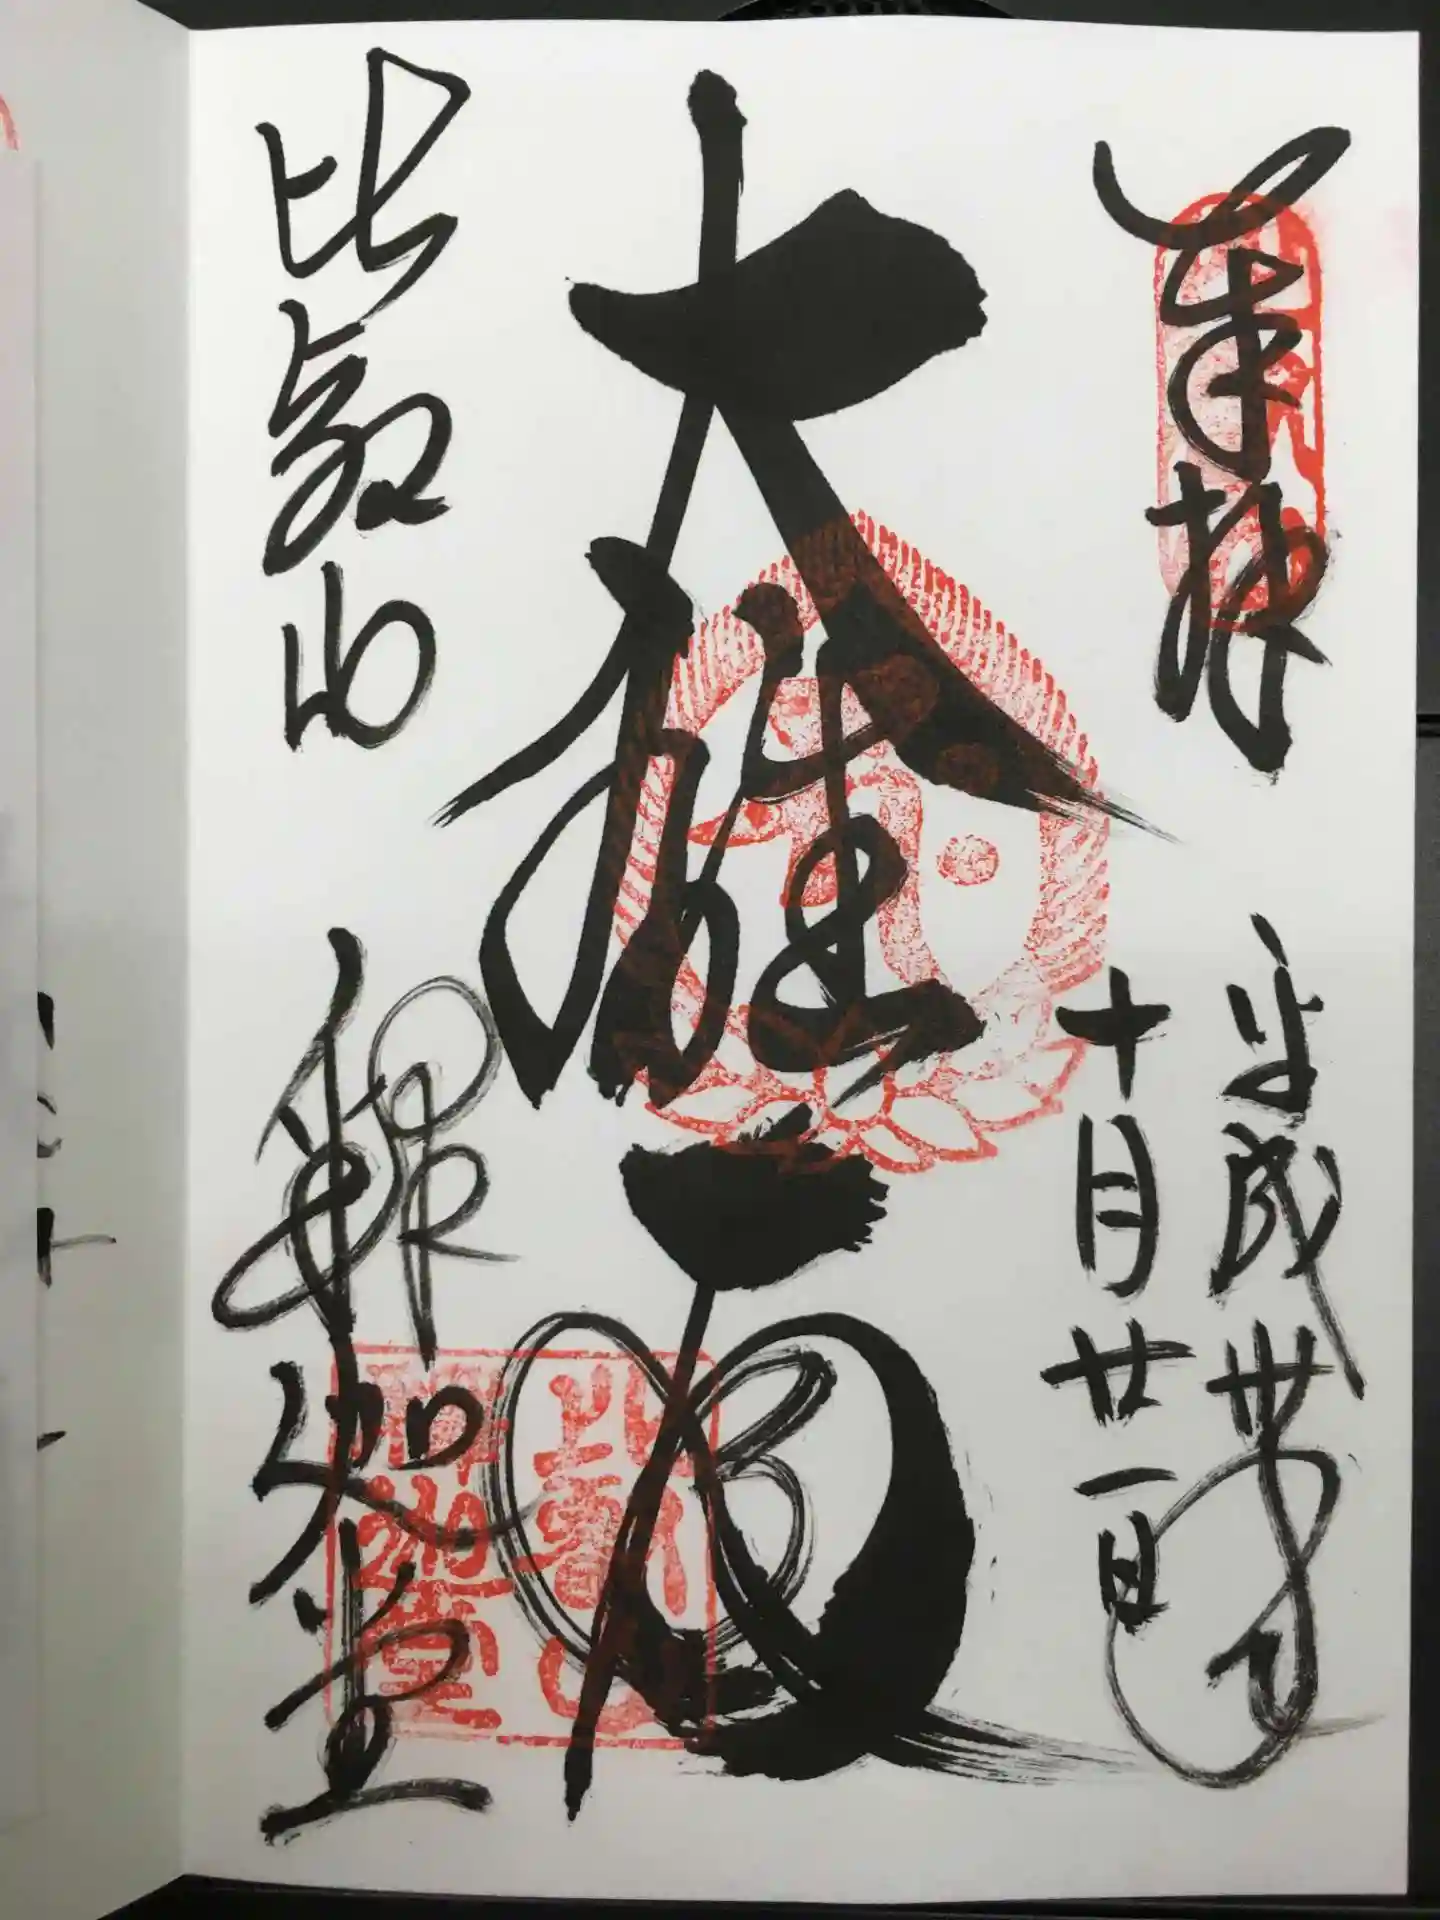 奉拝
平成卅年
十月廿一日
大雄
比叡山
釈迦堂
比叡山
釈迦堂